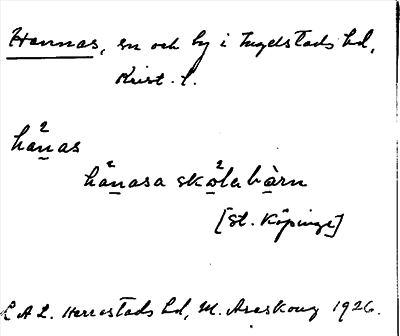 Hannas, sn och by i Ingelstads hd,
Krist. l.
ha²nas
ha²nasa sko²labàrn
[St. Köpinge]
L A L. Herrestads hd, M. Areskoug 1926.